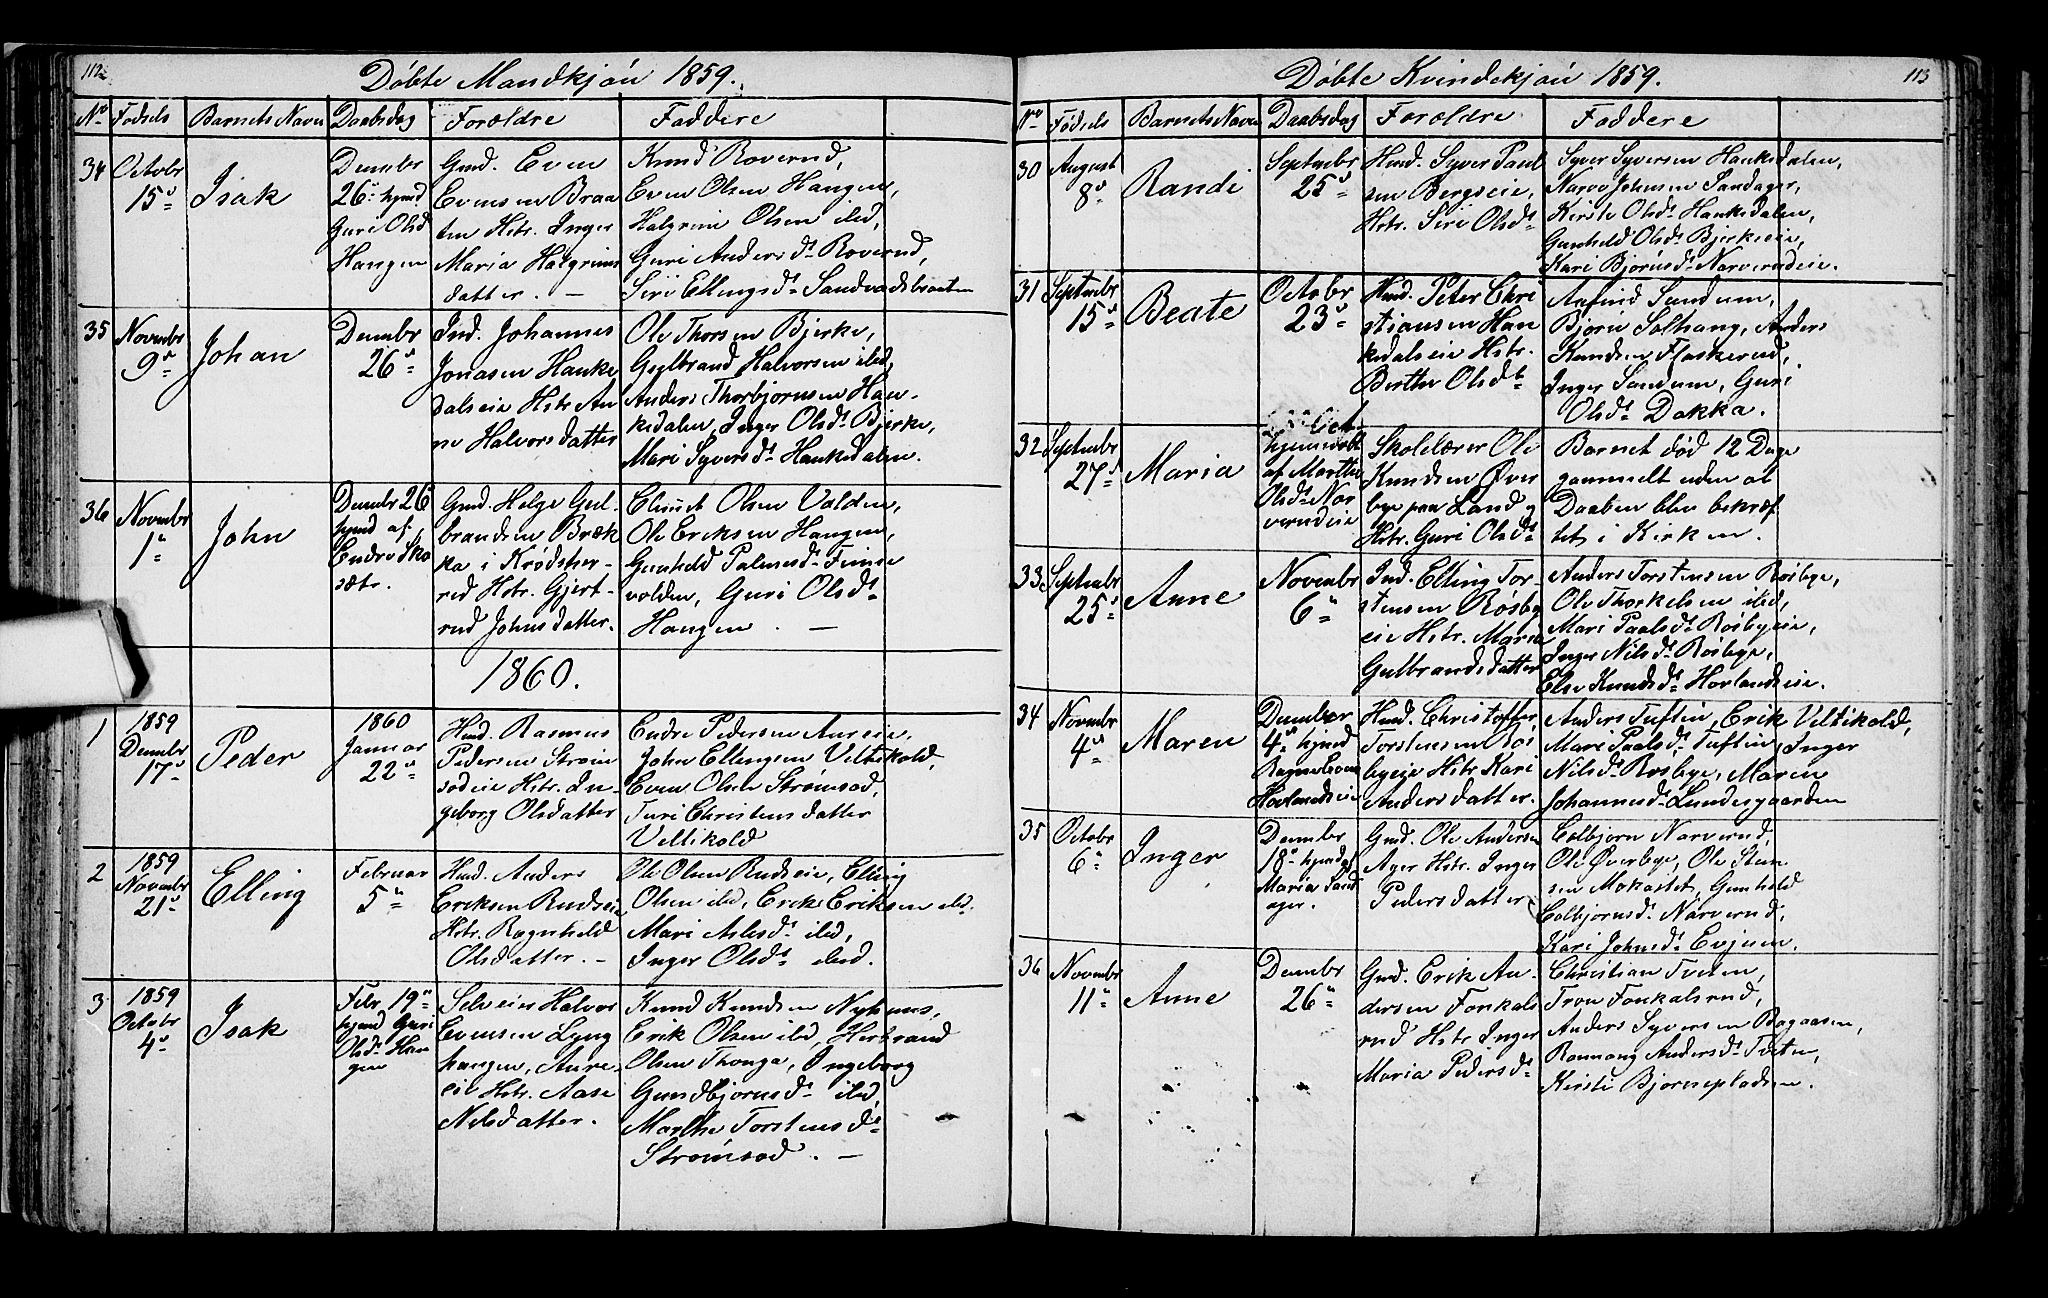 112
Döbte Mandkjön 1859.
No Fødsels Barnets Navn Daabsdag Forældre Faddere
34 Octobr 15de Isak
Decembr
26de hjmd
Guri Olsd
Haugen
Gmd. Even
Evensen Braa
ten Hstr. Inger
Maria Halgrims
datter. —
Knud Roverud,
Even Olsen Haugen,
Halgrim Olsen ibd,
Guri Andersdr Roverud,
Siri Ellingsdr Sandvadsbraaten
35 Novembr 9de Johan
Decembr
26de
Ind. Johannes
Jonasen Hauke
dalseie Hstr. An
ne Halvorsdatter
Ole Thorsen Bjerke,
Gulbrand Halvorsen ibd,
Anders Thorbjørnsen Hau-
kedalen, Inger Olsdr Bjerke,
Mari Syversdr Haukedalen.
36 Novembr 1te John
Decembr 26
hjmd af
Endre Sko
sætr.
Gmd. Helge Gul
brandsen Bræk
ka i Krødsher-
red Hstr. Gjert-
rud Johnsdatter.
Olsen Volden,
Ole Eriksen Haugen,
Gunhild Palmesdr Finne
volden, Guri Olsdr
Haugen. —
1860.
1 1859 Decembr 17de Peder
1860
Januar
22de
Hmd. Rasmus
Pedersen Strøm
sodeie Hstr. In-
geborg Olsdatter
Endre Pedersen Aureie,
John Ellingsen Veltikold,
Even Olsen Strømsod,
Turi Christensdatter
Veltikold
2 1859 Novembr 21de Elling
Februar
5te
Hmd. Anders
Eriksen Rudseie
Hstr. Ragnhild
Olsdatter. —
Ole Olsen Rudseie, Elling
Olsen ibd, Erik Eriksen ibd.
Mari Aslesdr ibd,
Inger Olsdr ibd.
3 1859 Octobr 4de Isak
Febr. 19de
hjmd Guri
Olsdr Hau
gen
Selveier Halvor
Evensen Lyng
haugen, Aure
eie Hstr. Aase
Nilsdatter.
Knud Knudsen Nyhuus,
Erik Olsen ibd, Herbrand
Olsen Thonga, Ingeborg
Gundbjørnsdr ibd,
Marthe Torstensdr
Strømsod. —
113
Döbte Kvindekjön 1859.
No Fødsels Barnets Navn Daabsdag Forældre Faddere
30 August 8de Randi
Septembr
25de
Hmd. Syver Paul
sen Bergseie,
Hstr. Siri Olsdr
Syver Syversen Haukedalen,
Narve Johnsen Sandager,
Kirsti Olsdr Haukedalen,
Gunhild Olsdr Bjerkeeie,
Kari Bjørnsdr Narverudeie.
31 Septembr 15de Beate
Octobr
23de
Hmd. Peter Chri
stiansen Hau
kedalseie Hstr.
Berthe Olsdr
Anfind Sundum,
Bjørn Solhaug, Anders
Knudsen Flaskerud,
Inger Sundum, Guri
Olsdr Dokka.
32 Septembr 27de Maria
hjemmedøbt
af Marthe
Olsdr Nar
verudeie
Skolelærer Ole
Knudsen Øver
bye paa Land og
Hstr. Guri Olsdr
Barnet død 12 Dage
gammelt uden at
Daaben blev bekræf
tet i Kirken.
33 Septembr 25de Anne
Novembr
6te
Ind. Elling Tor-
stensen Røsby
eie Hstr. Maren
Gulbrandsdatter
Anders Torstensen Røsbye,
Ole Thorkelsen ibd,
Mari Paalsdr Røsbyeie,
Inger Nilsdr Røsbye,
Else Knudsdr Hovlandseie.
34 Novembr 4de Maren
Decembr
4de hjmd
Hovlandseie
Hmd. Christoffer
Torstensen Røs
byeie Hstr Kari
Andersdatter.
Anders Tuftin, Erik Veltikold,
Mari Paalsdr Tuftin, Inger
Nilsdr Røsbye, Maren
Johannesdr Lundesgaarden
35 Octobr 6te Inger
Decembr
18de hjmd af
Maria Sand
ager.
Gmd. Ole Andersen
Ager Hstr. Inger
Pedersdatter
Colbjørn Narverud,
Ole Øverbye, Ole Sten
sen Mokastet, Gunhild
Colbjørnsdr Narverud,
Kari Johnsdr Evjuen.
36 Novembr 11te Anne
Decembr
26de
Gmd. Erik An-
dersen Fonkals
rud Hstr. Inger
Maria Pedersdr
Christian Tveten,
Tron Fonkalsrud,
Anders Syversen Bagaasen,
Rannang Andersdr Tveten,
Kirsti Bjørnepladsen.